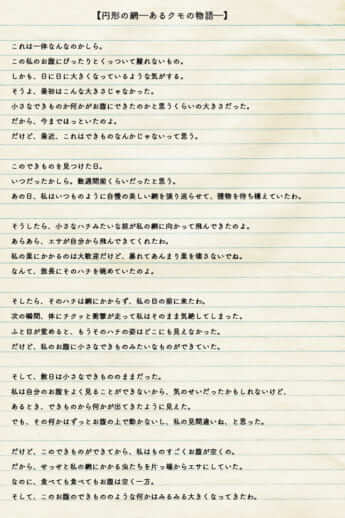 【円形の網―あるクモの物語―】
これは一体なんなのかしら。
この私のお腹にぴったりとくっついて離れないもの。
しかも、日に日に大きくなっているような気がする。
そうよ、最初はこんな大きさじゃなかった。
小さなできものか何かがお腹にできたのかと思うくらいの大きさだった。
だから、今までほっといたのよ。
だけど、最近、これはできものなんかじゃないって思う。
このできものを見つけた日。
いつだったかしら。数週間前くらいだったと思う。
あの日、私はいつものように自慢の美しい網を張り巡らせて、獲物を待ち構えていたわ。
そうしたら、小さなハチみたいな奴が私の網に向かって飛んできたのよ。
あらあら、エサが自分から飛んできてくれたわ。
私の巣にかかるのは大歓迎だけど、暴れてあんまり巣を壊さないでね。
なんて、悠長にそのハチを眺めていたのよ。
そしたら、そのハチは網にかからず、私の目の前に来たわ。
次の瞬間、体にチクッと衝撃が走って私はそのまま気絶してしまった。
ふと目が覚めると、もうそのハチの姿はどこにも見えなかった。
だけど、私のお腹に小さなできものみたいなものができていた。
そして、数日は小さなできもののままだった。
私は自分のお腹をよく見ることができないから、気のせいだったかもしれないけど、
あるとき、できものから何かが出てきたように見えた。
でも、その何かはずっとお腹の上で動かないし、私の見間違いね、と思った。
だけど、このできものができてから、私はものすごくお腹が空くの。
だから、せっせと私の網にかかる虫たちを片っ端からエサにしていた。
なのに、食べても食べてもお腹は空く一方。
そして、このお腹のできもののような何かはみるみる大きくなってきたわ。